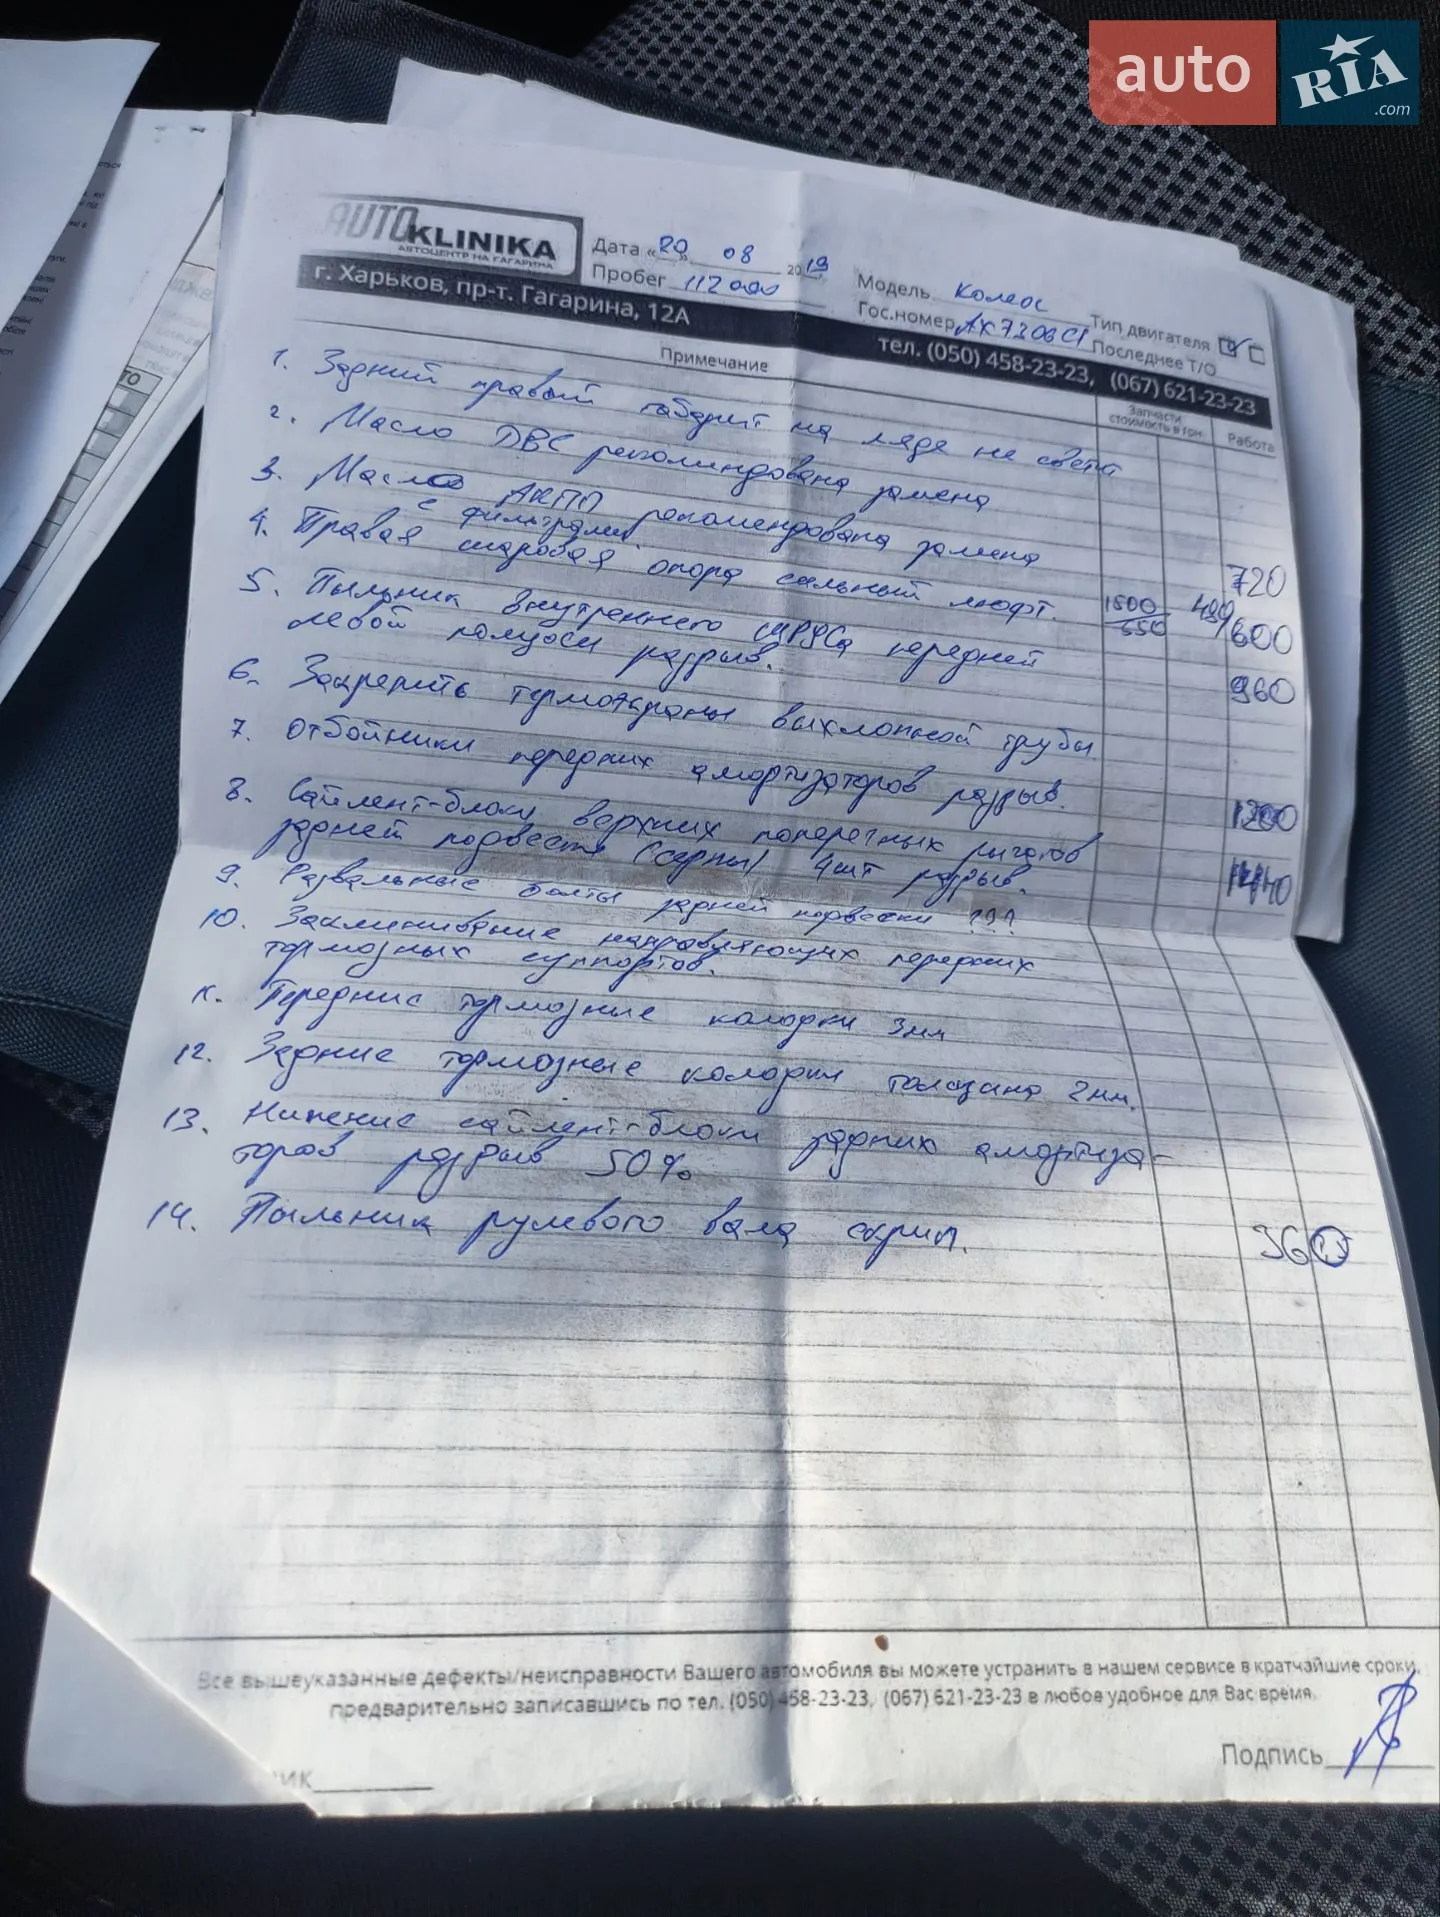 auto RIA .com
AUTO KLINIKA
АВТОЦЕНТР НА ГАГАРИНА
Дата «20» 08 2019
Пробег 112 000
Модель Колеос
Гос.номер АХ7306СІ
Тип двигателя
Последнее Т/О
г. Харьков, пр-т. Гагарина, 12А
тел. (050) 458-23-23, (067) 621-23-23
Примечание
Запчасти
стоимость в грн
Работа
1. Задний правый габарит на ляде не светит
2. Масло ДВС рекоминдована замена
3. Масло АКПП рекомендована замена
с фильтрами 720
4. Правая шаровая опора сильный люфт. 1500/550 480/600
5. Пыльник внутреннего ШРУСа передней
левой полуоси разрыв. 960
6. Закрепить термоэкраны выхлопной трубы
7. Отбойники передних амортизаторов разрыв. 1200
8. Сайлент-блоки верхних поперечных рычагов
задней подвески (серпы) 4шт разрыв. 1440
9. Развальные болты задней подвески ???
10. Заклинивание направляющих передних
тормозных суппортов.
11. Передние тормозные колодки 3мм
12. Задние тормозные колодки толщина 2мм.
13. Нижние сайлент-блоки задних амортиза-
торов разрыв 50%
14. Пыльник рулевого вала скрип. 360
Все вышеуказанные дефекты/неисправности Вашего автомобиля вы можете устранить в нашем сервисе в кратчайшие сроки,
предварительно записавшись по тел. (050) 458-23-23, (067) 621-23-23 в любое удобное для Вас время.
Подпись